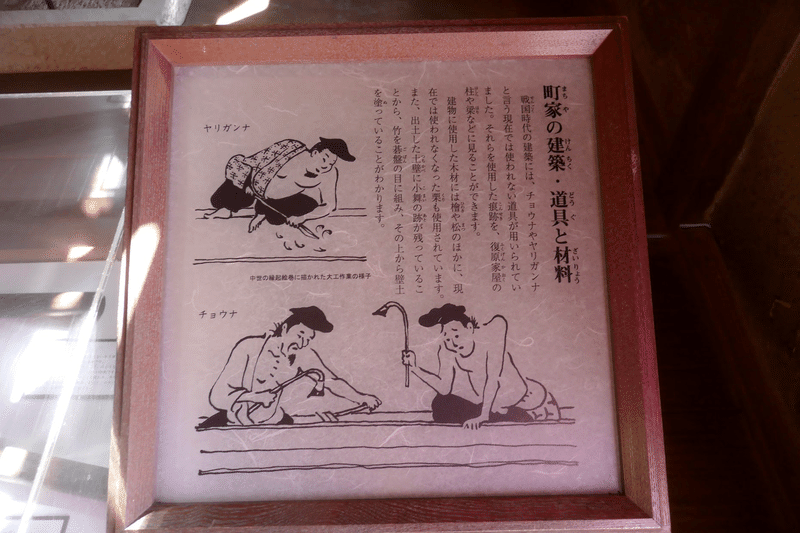 町家の建築・道具と材料
まちや
けんちく
どうぐ
ざいりょう
戦国時代の建築には、チョウナやヤリガンナ
と言う現在では使われない道具が用いられてい
ました。それらを使用した痕跡を、復原家屋の
柱や梁などに見ることができます。
建物に使用した木材には檜や松のほかに、現
在では使われなくなった栗も使用されています。
また、出土した土壁に小舞の跡が残っているこ
とから、竹を碁盤の目に組み、その上から壁土
を塗っていることがわかります。
ヤリガンナ
中世の縁起絵巻に描かれた大工作業の様子
チョウナ